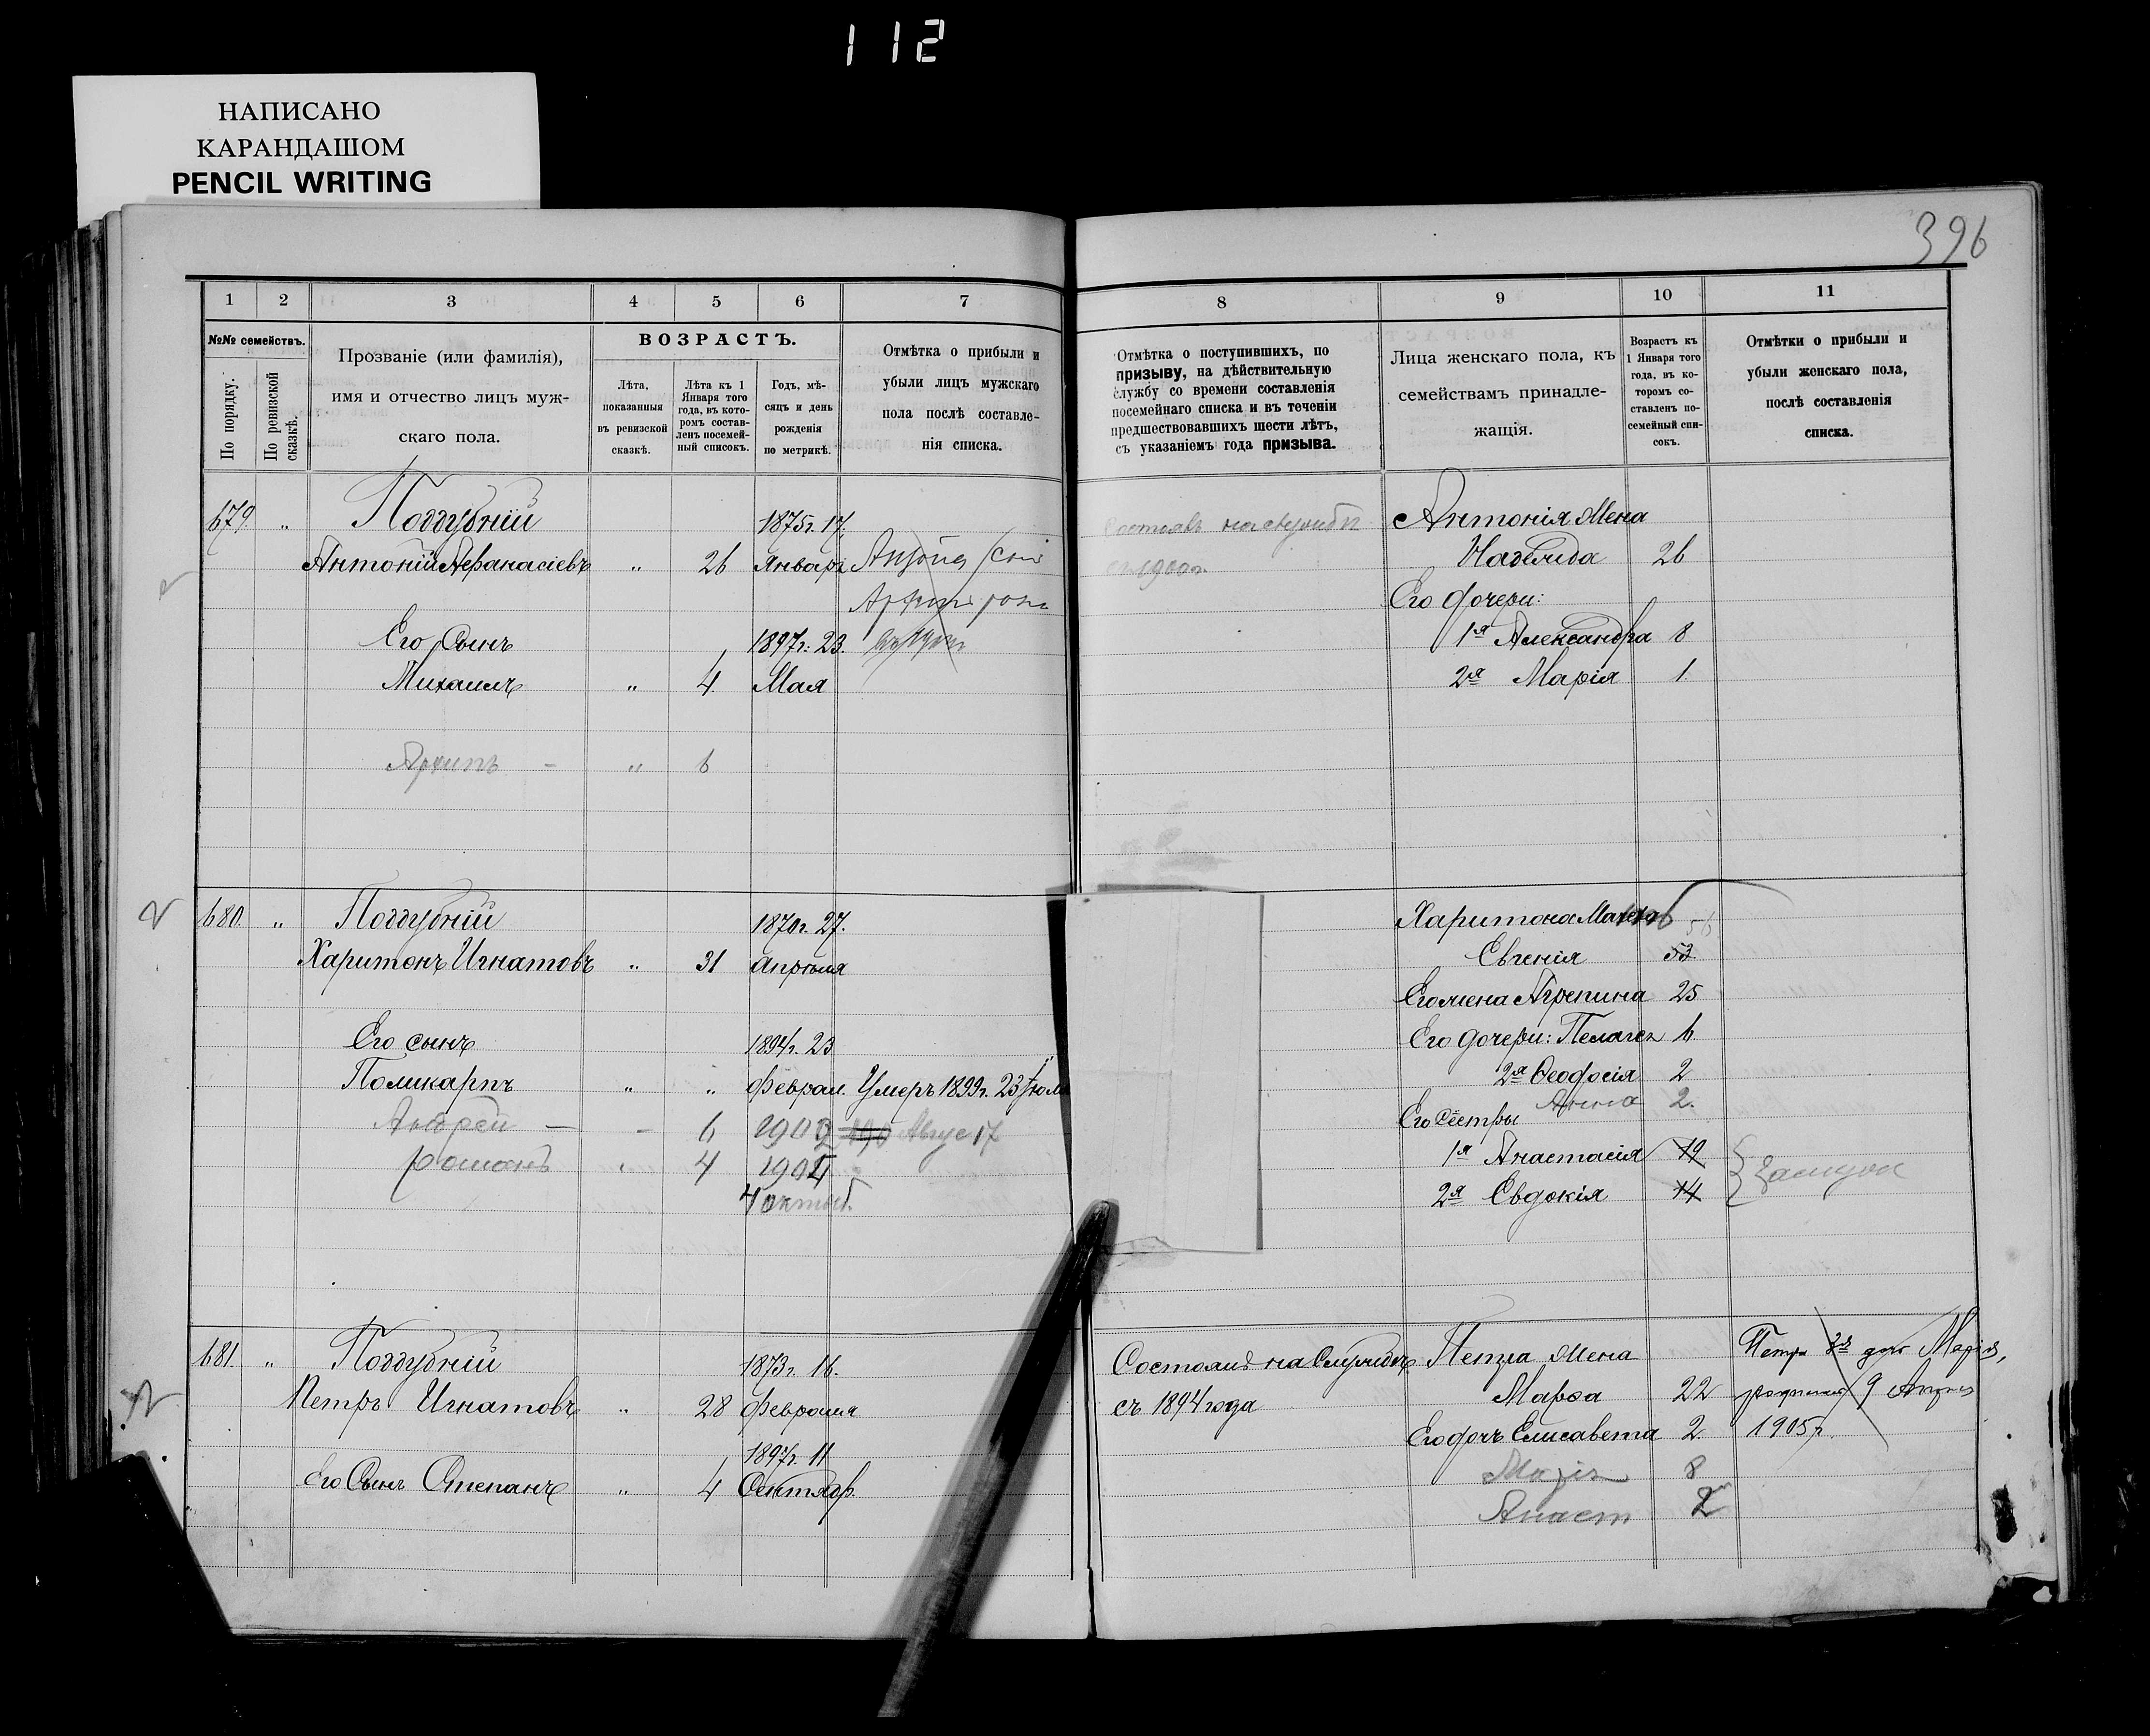 112
НАПИСАНО
КАРАНДАШОМ
PENCIL WRITING
396
1 2 3 4 5 6 7
№№ семействъ.
По порядку.
По ревизской сказкѣ.
Прозваніе (или фамилія),
имя и отчество лицъ муж-
скаго пола.
ВОЗРАСТЪ.
Лѣта,
показанныя
въ ревизской
сказкѣ.
Лѣта къ 1
Января того
года, въ кото-
ромъ состав-
ленъ посемей-
ный списокъ.
Годъ, мѣ-
сяцъ и день
рожденія
по метрикѣ.
Отмѣтка о прибыли и
убыли лицъ мужскаго
пола послѣ составле-
нія списка.
8 9 10 11
Отмѣтка о поступившихъ, по
призыву, на дѣйствительную
службу со времени составленія
посемейнаго списка и въ теченіи
предшествовавшихъ шести лѣтъ,
съ указаніемъ года призыва.
Лица женскаго пола, къ
семействамъ принадле-
жащія.
Возрастъ къ
1 Января того
года, въ ко-
торомъ со-
ставленъ по-
семейный спи-
сокъ.
Отмѣтки о прибыли и
убыли женскаго пола,
послѣ составленія
списка.
679 " Поддубній 1875г. 17.
Антоній Аѳанасіевъ " 26 Январ.
Его Сынъ 1897г. 23.
Михаилъ " 4. Мая
Архипъ - " 6
на службѣ
1900г.
Антонія Жена
Надежда 26
Его дочери:
1я Александра 8
2я Марія 1.
680. " Поддубній 1870г. 27.
Харитонъ Игнатовъ " 31 Апрѣля
Его сынъ 1894г. 23
Поликарпъ " " Феврал. Умеръ 1899г. 23 Іюля
Андрей - - 6 1902 Авгус 17
Романъ " 4 1904
4 октяб.
Харитона Мать 56
Евгенія 53
Его жена Агрепина 25
Его дочери: Пелагея 6.
2я Ѳеодосія 2
Анна 2.
Его сестры
1я Анастасія 19
2я Евдокія 14
замужа
681. " Поддубній 1873г. 16.
Петръ Игнатовъ " 28 Февраля
1897г. 11
Его Сынъ Степанъ " 4 Сентябр.
Состоялъ на Службѣ
съ 1894 года
Петра Жена
Марѳа 22
Его дочь Елисавета 2.
Марія 8
Анаст 2
Петра 2я доч Марія,
9 Апрѣл
1905г.